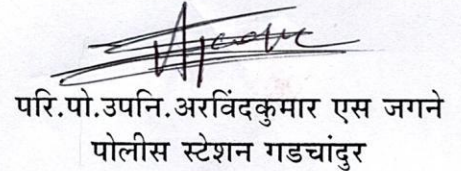 परि.पो.उपनि.अरविंदकुमार एस जगने
पोलीस स्टेशन गडचांदुर